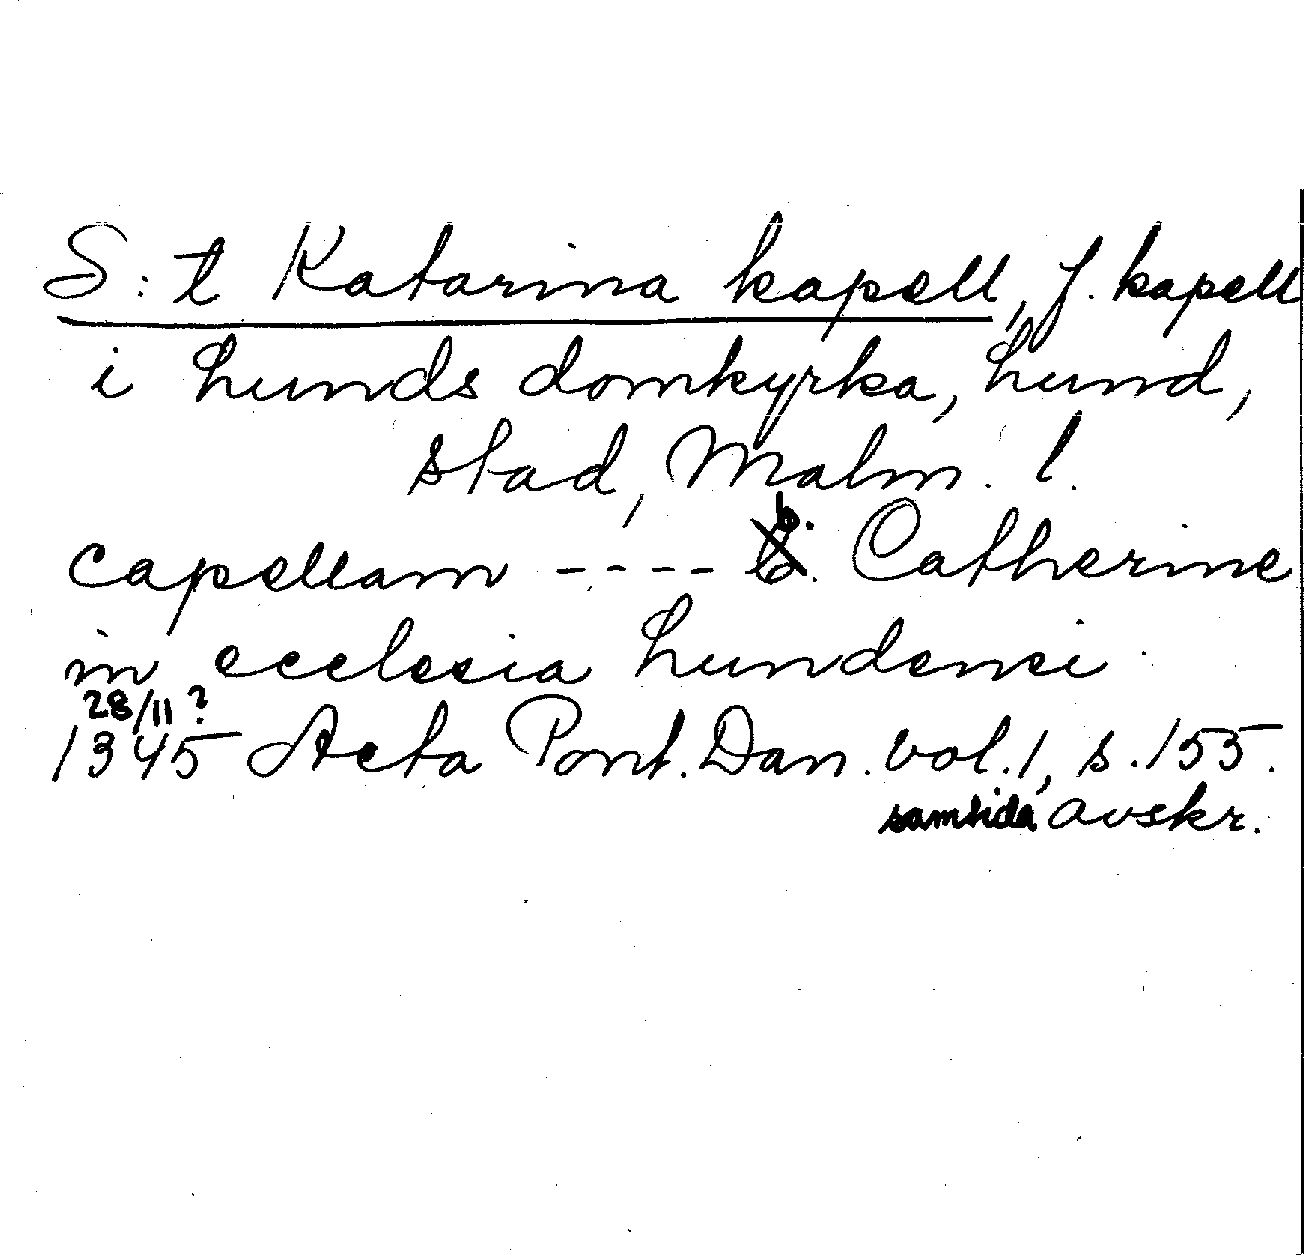 S:t Katarina kapell, f. kapell
i Lunds domkyrka, Lund,
stad, Malm. l.
capellam ---- b. Catherine
in ecclesia Lundensi
28/11 ?
1345 Acta Pont. Dan. vol. 1, s. 155.
samtida avskr.